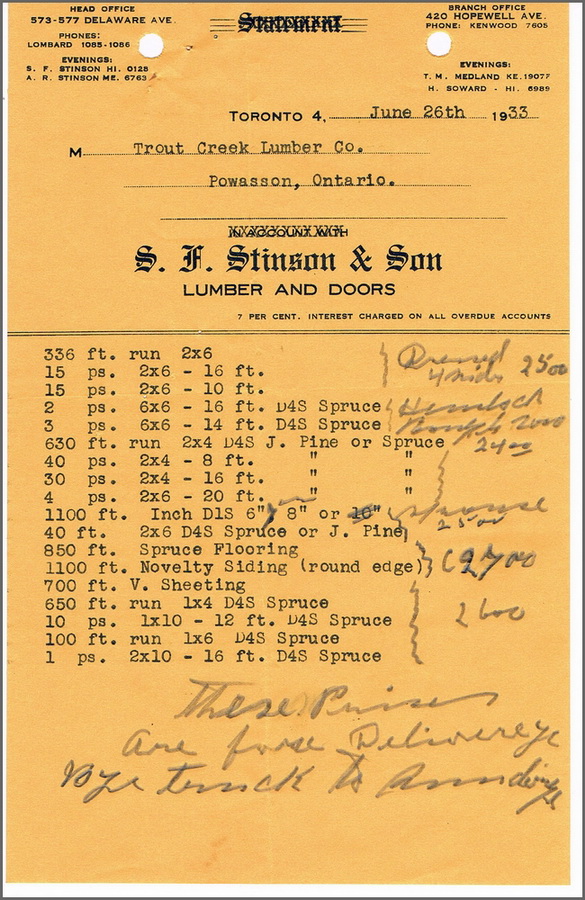 HEAD OFFICE
573-577 DELAWARE AVE.
PHONES:
LOMBARD 1085-1086
EVENINGS:
S. F. STINSON HI. 0128
A. R. STINSON ME. 6763
Statement
BRANCH OFFICE
420 HOPEWELL AVE.
PHONE: KENWOOD 7605
EVENINGS:
T. M. MEDLAND KE. 19077
H. SOWARD - HI. 6989
TORONTO 4, June 26th 1933
M Trout Creek Lumber Co.
Powasson, Ontario.
IN ACCOUNT WITH
S. F. Stinson & Son
LUMBER AND DOORS
7 PER CENT. INTEREST CHARGED ON ALL OVERDUE ACCOUNTS
336 ft. run 2x6
15 ps. 2x6 - 16 ft.
15 ps. 2x6 - 10 ft.
Dressed
4 sids 2500
2 ps. 6x6 - 16 ft. D4S Spruce Hemlock
3 ps. 6x6 - 14 ft. D4S Spruce Rough 2000
630 ft. run 2x4 D4S J. Pine or Spruce
2400
40 ps. 2x4 - 8 ft. " "
30 ps. 2x4 - 16 ft. " "
4 ps. 2x6 - 20 ft. " "
1100 ft. Inch D1S 6" 8" or 10"
2500
40 ft. 2x6 D4S Spruce or J. Pine
850 ft. Spruce Flooring
1100 ft. Novelty Siding (round edge) 2700
700 ft. V. Sheeting
650 ft. run 1x4 D4S Spruce
10 ps. 1x10 - 12 ft. D4S Spruce 2600
100 ft. run 1x6 D4S Spruce
1 ps. 2x10 - 16 ft. D4S Spruce
These Prises
Are force Delivereye
Bye truck to